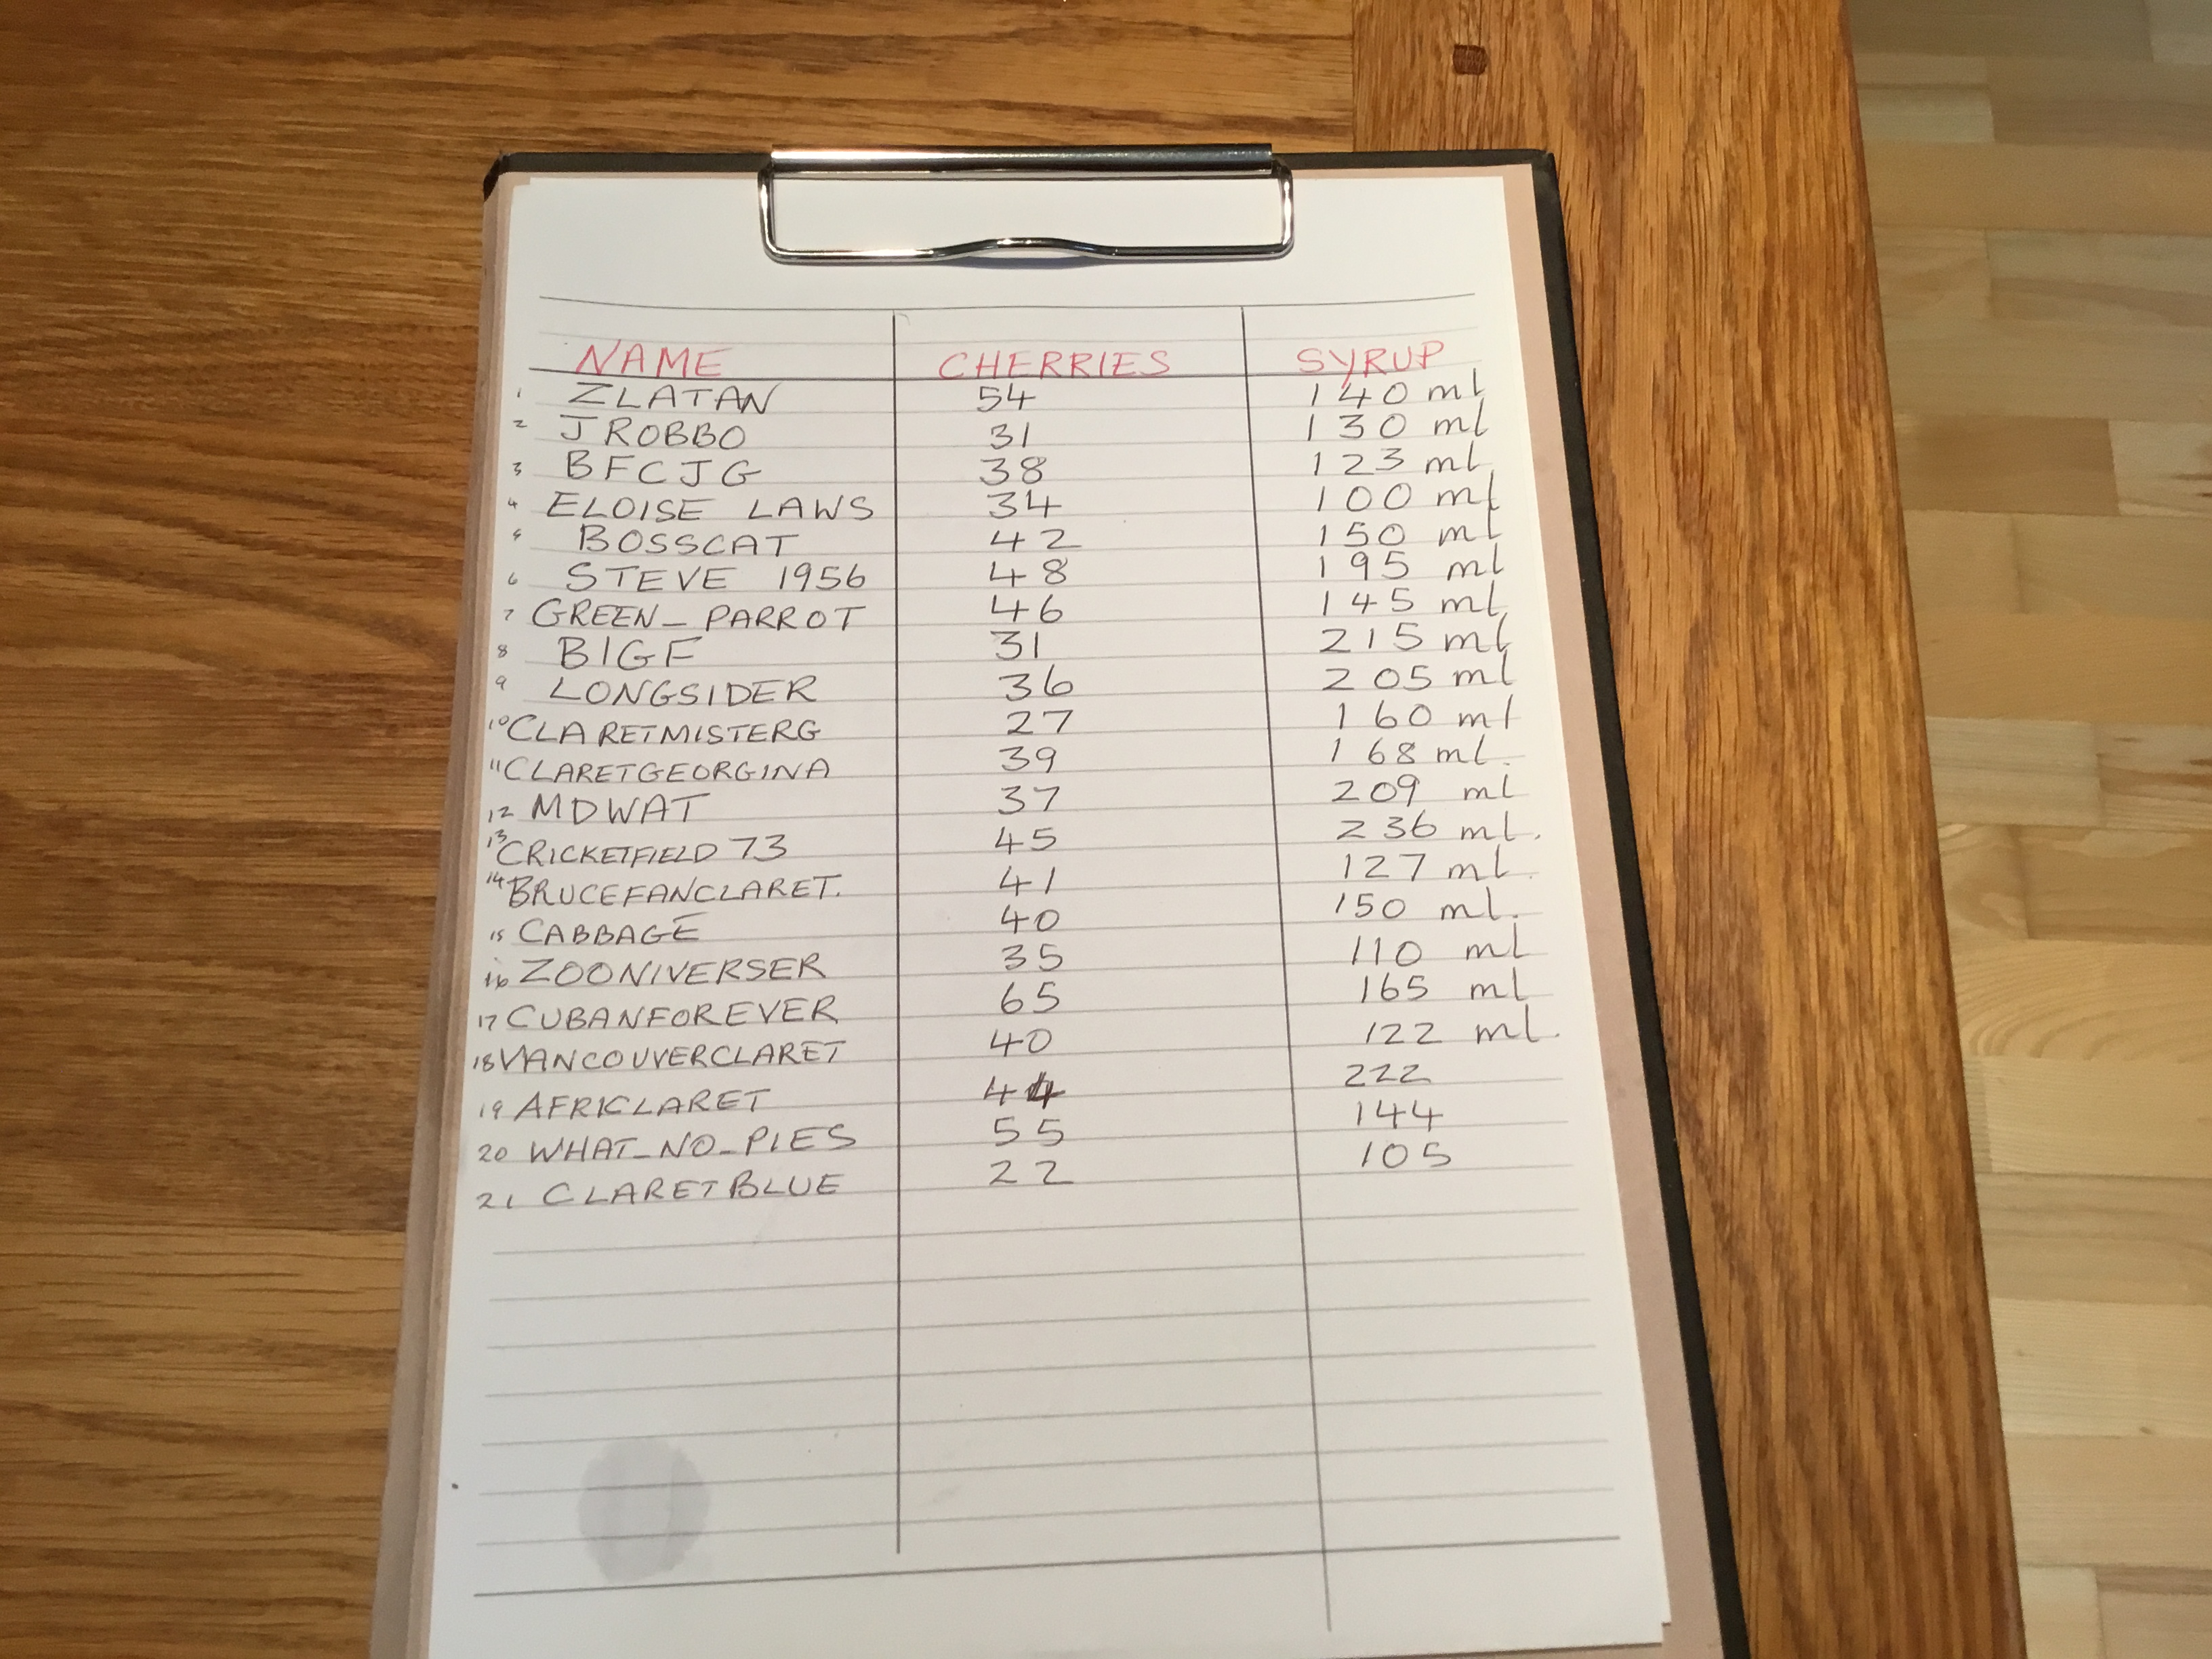 NAME CHERRIES SYRUP
1 ZLATAN 54 140 ml
2 JROBBO 31 130 ml
3 BFCJG 38 123 ml
4 ELOISE LAWS 34 100 ml
5 BOSSCAT 42 150 ml
6 STEVE 1956 48 195 ml
7 GREEN_PARROT 46 145 ml
8 BIGF 31 215 ml
9 LONGSIDER 36 205 ml
10 CLARETMISTERG 27 160 ml
11 CLARETGEORGINA 39 168 ml.
12 MDWAT 37 209 ml
13 CRICKETFIELD 73 45 236 ml.
14 BRUCEFANCLARET. 41 127 ml.
15 CABBAGE 40 150 ml.
16 ZOONIVERSER 35 110 ml
17 CUBANFOREVER 65 165 ml
18 VANCOUVERCLARET 40 122 ml.
19 AFRICLARET 44 222
20 WHAT_NO_PIES 55 144
21 CLARETBLUE 22 105